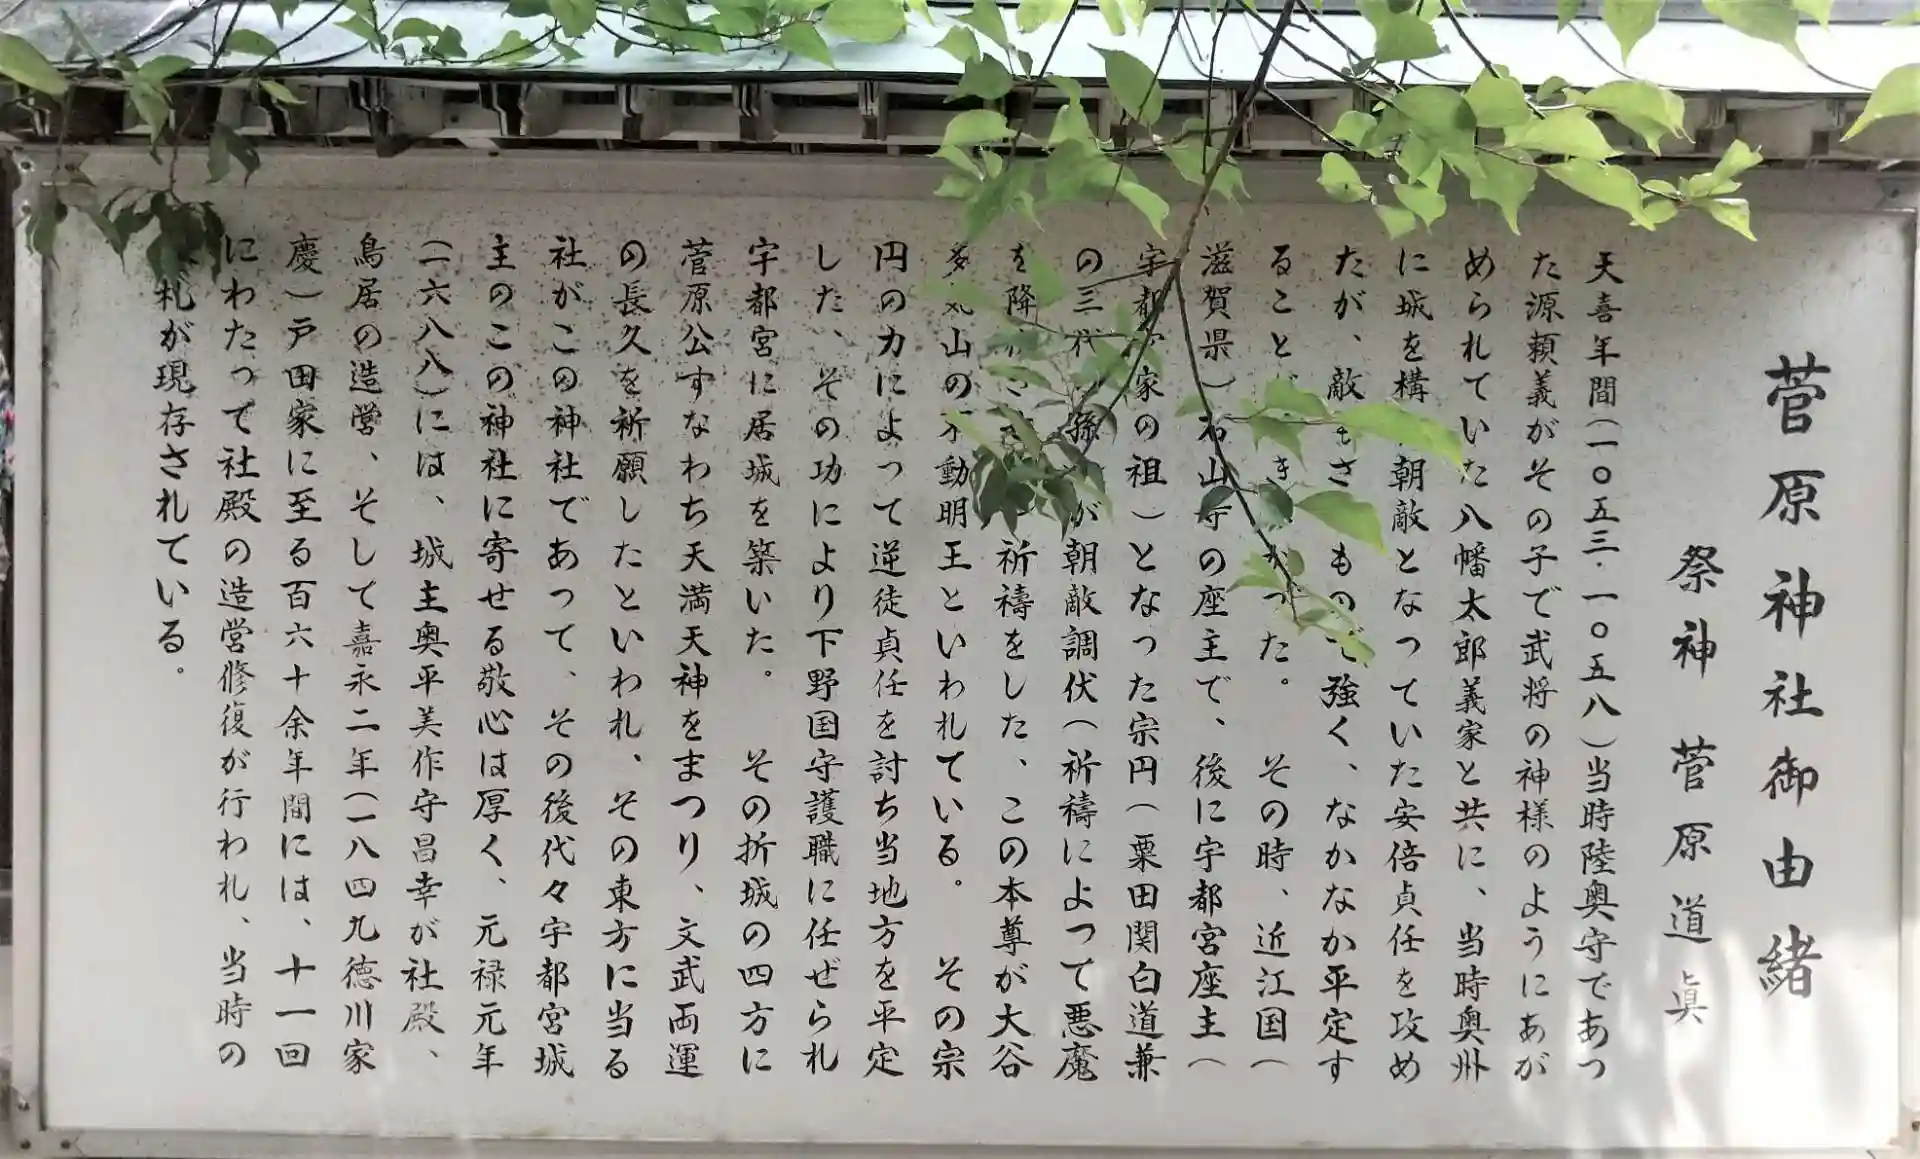 菅原神社御由緒
祭神 菅原道眞
天喜年間(一〇五三・一〇五八)当時陸奥守であっ
た源頼義がその子で武将の神様のようにあが
められていた八幡太郎義家と共に、当時奥州
に城を構 朝敵となっていた安倍貞任を攻め
たが、敵もさ もので強く、なかなか平定す
ること き かった。 その時、近江国(
滋賀県)石山寺の座主で、後に宇都宮座主(
宇都 家の祖)となった宗円(粟田関白道兼
の三代 孫 が朝敵調伏(祈禱によって悪魔
を降 祈禱をした、この本尊が大谷
多気山の不動明王といわれている。 その宗
円の力によって逆徒貞任を討ち当地方を平定
した、その功により下野国守護職に任ぜられ
宇都宮に居城を築いた。 その折城の四方に
菅原公すなわち天満天神をまつり、文武両運
の長久を祈願したといわれ、その東方に当る
社がこの神社であって、その後代々宇都宮城
主のこの神社に寄せる敬心は厚く、元禄元年
(一六八八)には、城主奥平美作守昌幸が社殿、
鳥居の造営、そして嘉永二年(一八四九徳川家
慶)戸田家に至る百六十余年間には、十一回
にわたって社殿の造営修復が行われ、当時の
札が現存されている。